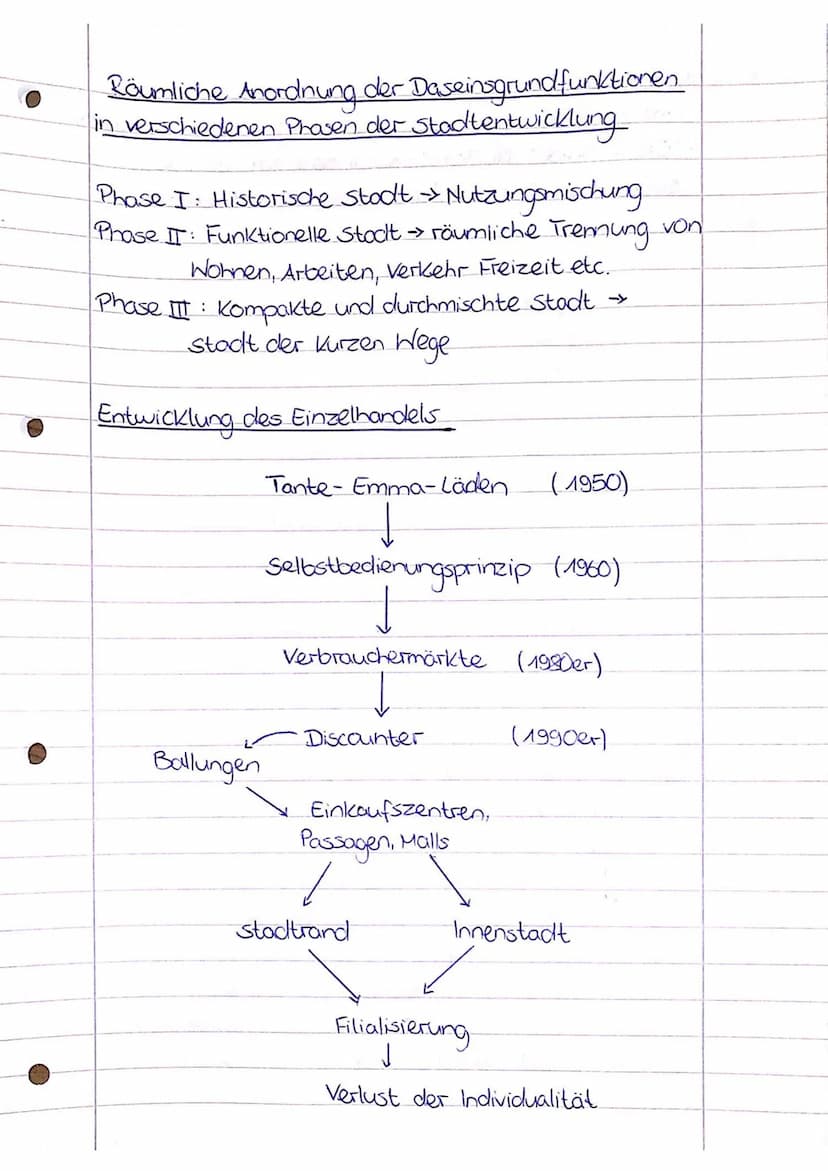 Räumliche Anordnung der Daseinsgrundfunktionen
in verschiedenen Phasen der Stadtentwicklung
Phase I: Historische Stadt → Nutzungsmischung
Phase II: Funktionelle Stadt → räumliche Trennung von
Wohnen, Arbeiten, Verkehr Freizeit etc.
Phase III: Kompakte und durchmischte Stadt →
Stadt der kurzen Wege
Entwicklung des Einzelhandels
Tante-Emma-Läden (1950)
↓
Selbstbedienungsprinzip (1960)
↓
Verbrauchermärkte (1980er)
↓
Discounter (1990er)
Ballungen
Einkaufszentren,
Passagen, Malls
Stadtrand Innenstadt
Filialisierung
↓
Verlust der Individualität